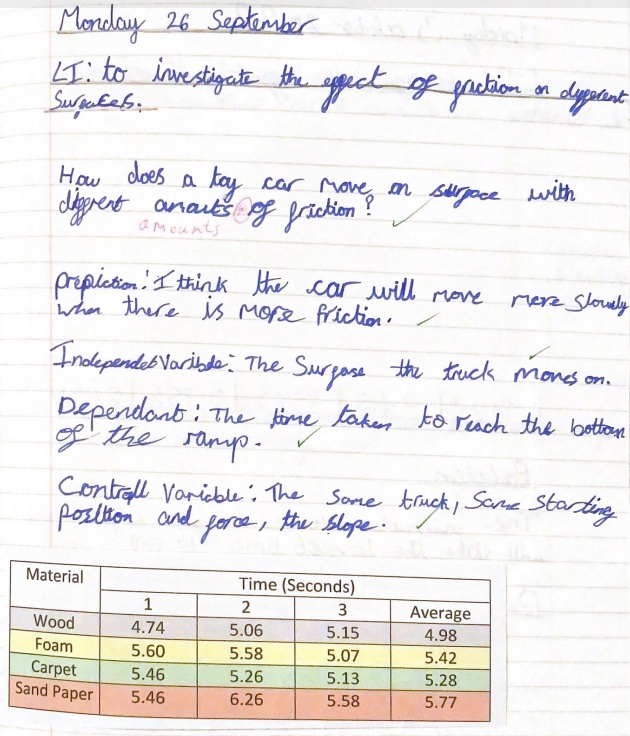 Monday 26 September
LI: to investigate the effect of friction on different
Surfaces.
How does a toy car move on surface with
diggrent amauts of friction?
amounts
prepiction: I think the car will move more slowly
when there is more friction.
Independet Varibde: The Surgase the truck moves on.
Dependant: The time taken to reach the bottom
of the ramp.
Controll Variable: The same truck, Same Starting
position and force, the slope.
Material Time (Seconds)
1 2 3 Average
Wood 4.74 5.06 5.15 4.98
Foam 5.60 5.58 5.07 5.42
Carpet 5.46 5.26 5.13 5.28
Sand Paper 5.46 6.26 5.58 5.77